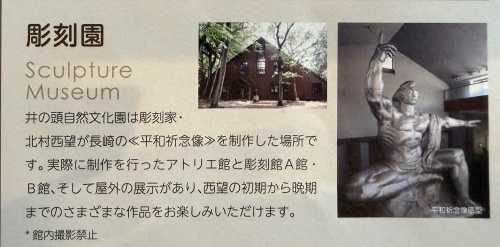 彫刻園
Sculpture
Museum
井の頭自然文化園は彫刻家・
北村西望が長崎の≪平和祈念像≫を制作した場所で
す。実際に制作を行ったアトリエ館と彫刻館A館・
B館、そして屋外の展示があり、西望の初期から晩期
までのさまざまな作品をお楽しみいただけます。
*館内撮影禁止
平和祈念像原型